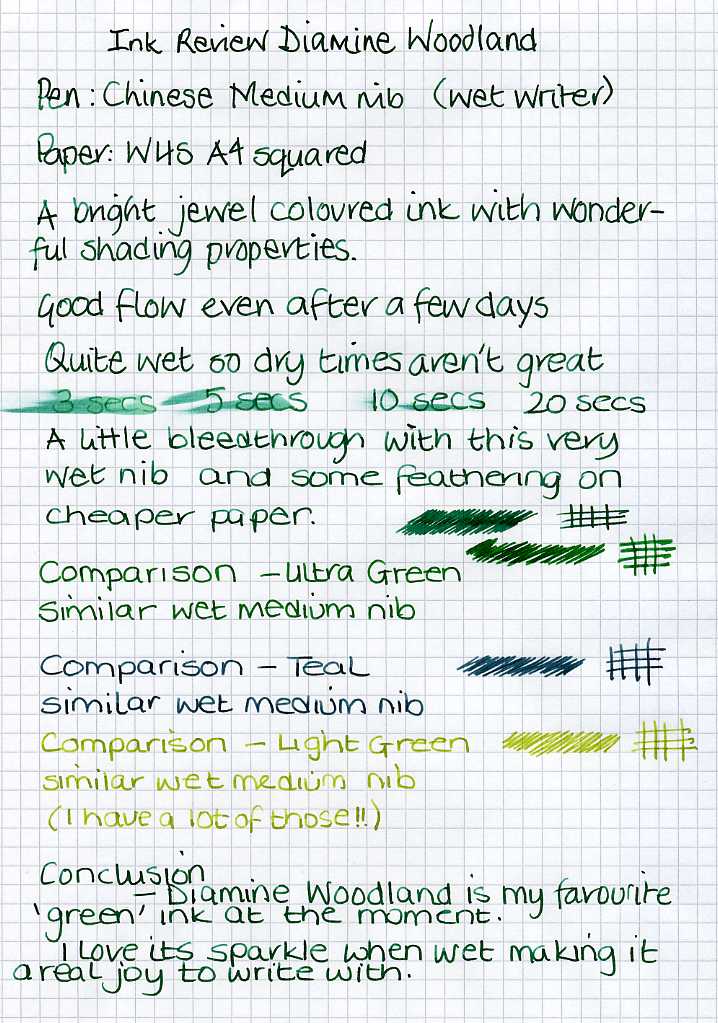 Ink Review Diamine Woodland
Pen: Chinese Medium nib (wet writer)
Paper: WHS A4 squared
A bright jewel coloured ink with wonder-
ful shading properties.
Good flow even after a few days
Quite wet so dry times aren't great
3 secs 5 secs 10 secs 20 secs
A little bleedthrough with this very
wet nib and some feathering on
cheaper paper.
Comparison – Ultra Green
similar wet medium nib
Comparison – Teal
similar wet medium nib
Comparison – Light Green
similar wet medium nib
(I have a lot of those!!)
Conclusion
– Diamine Woodland is my favourite
'green' ink at the moment.
I love its sparkle when wet making it
a real joy to write with.